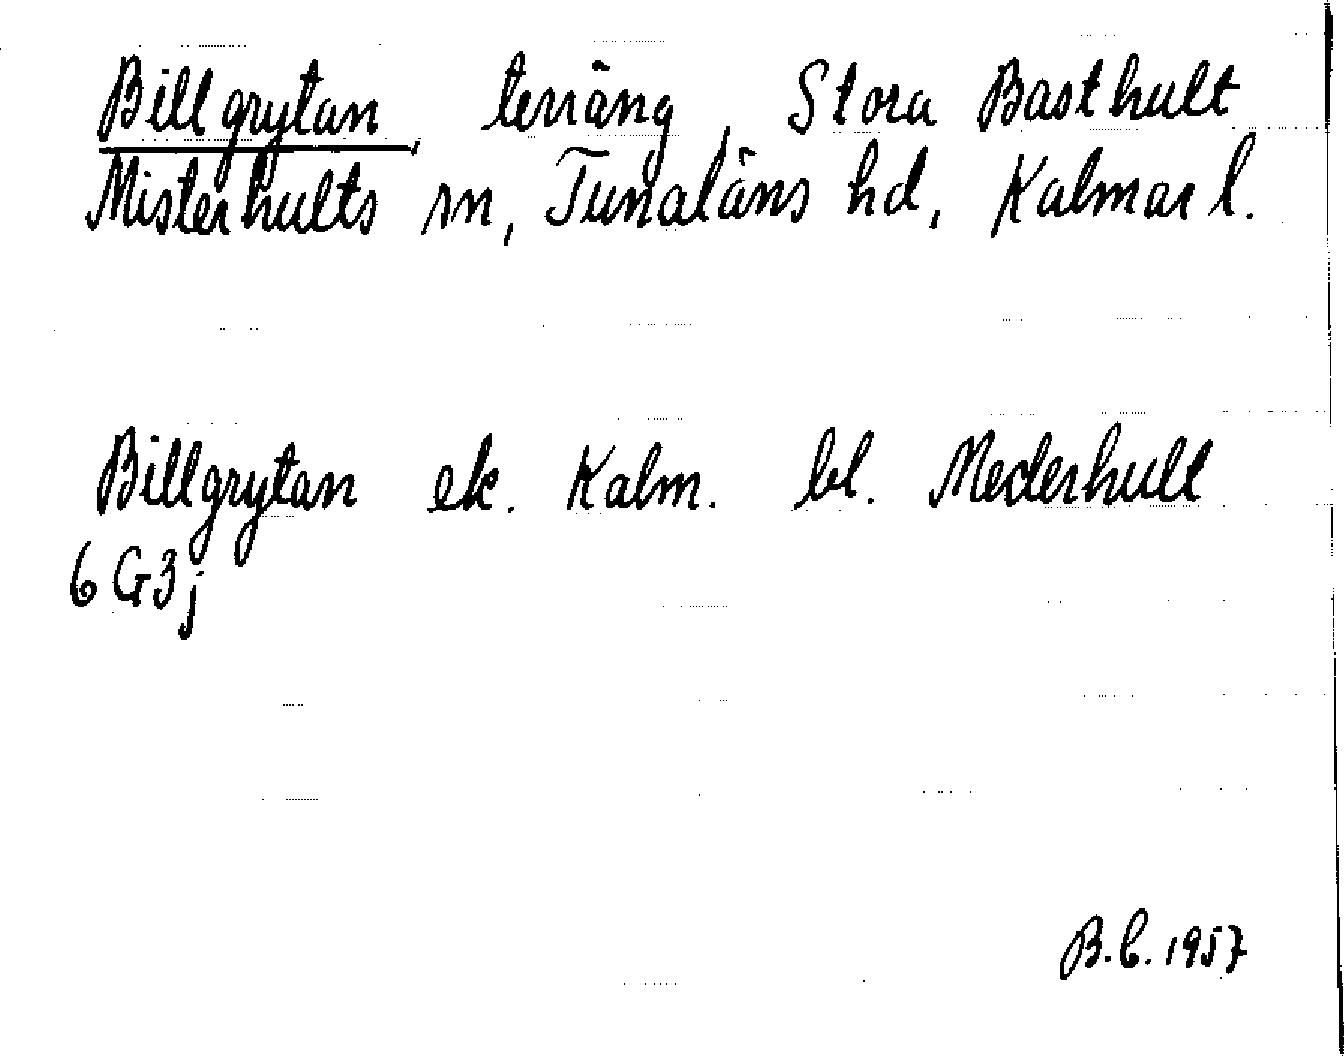 Billgrytan, terräng, Stora Basthult
Misterhults sn, Tunaläns hd, Kalmar l.
Billgrytan ek. Kalm. bl. Mederhult
6G3j
B.C. 1957